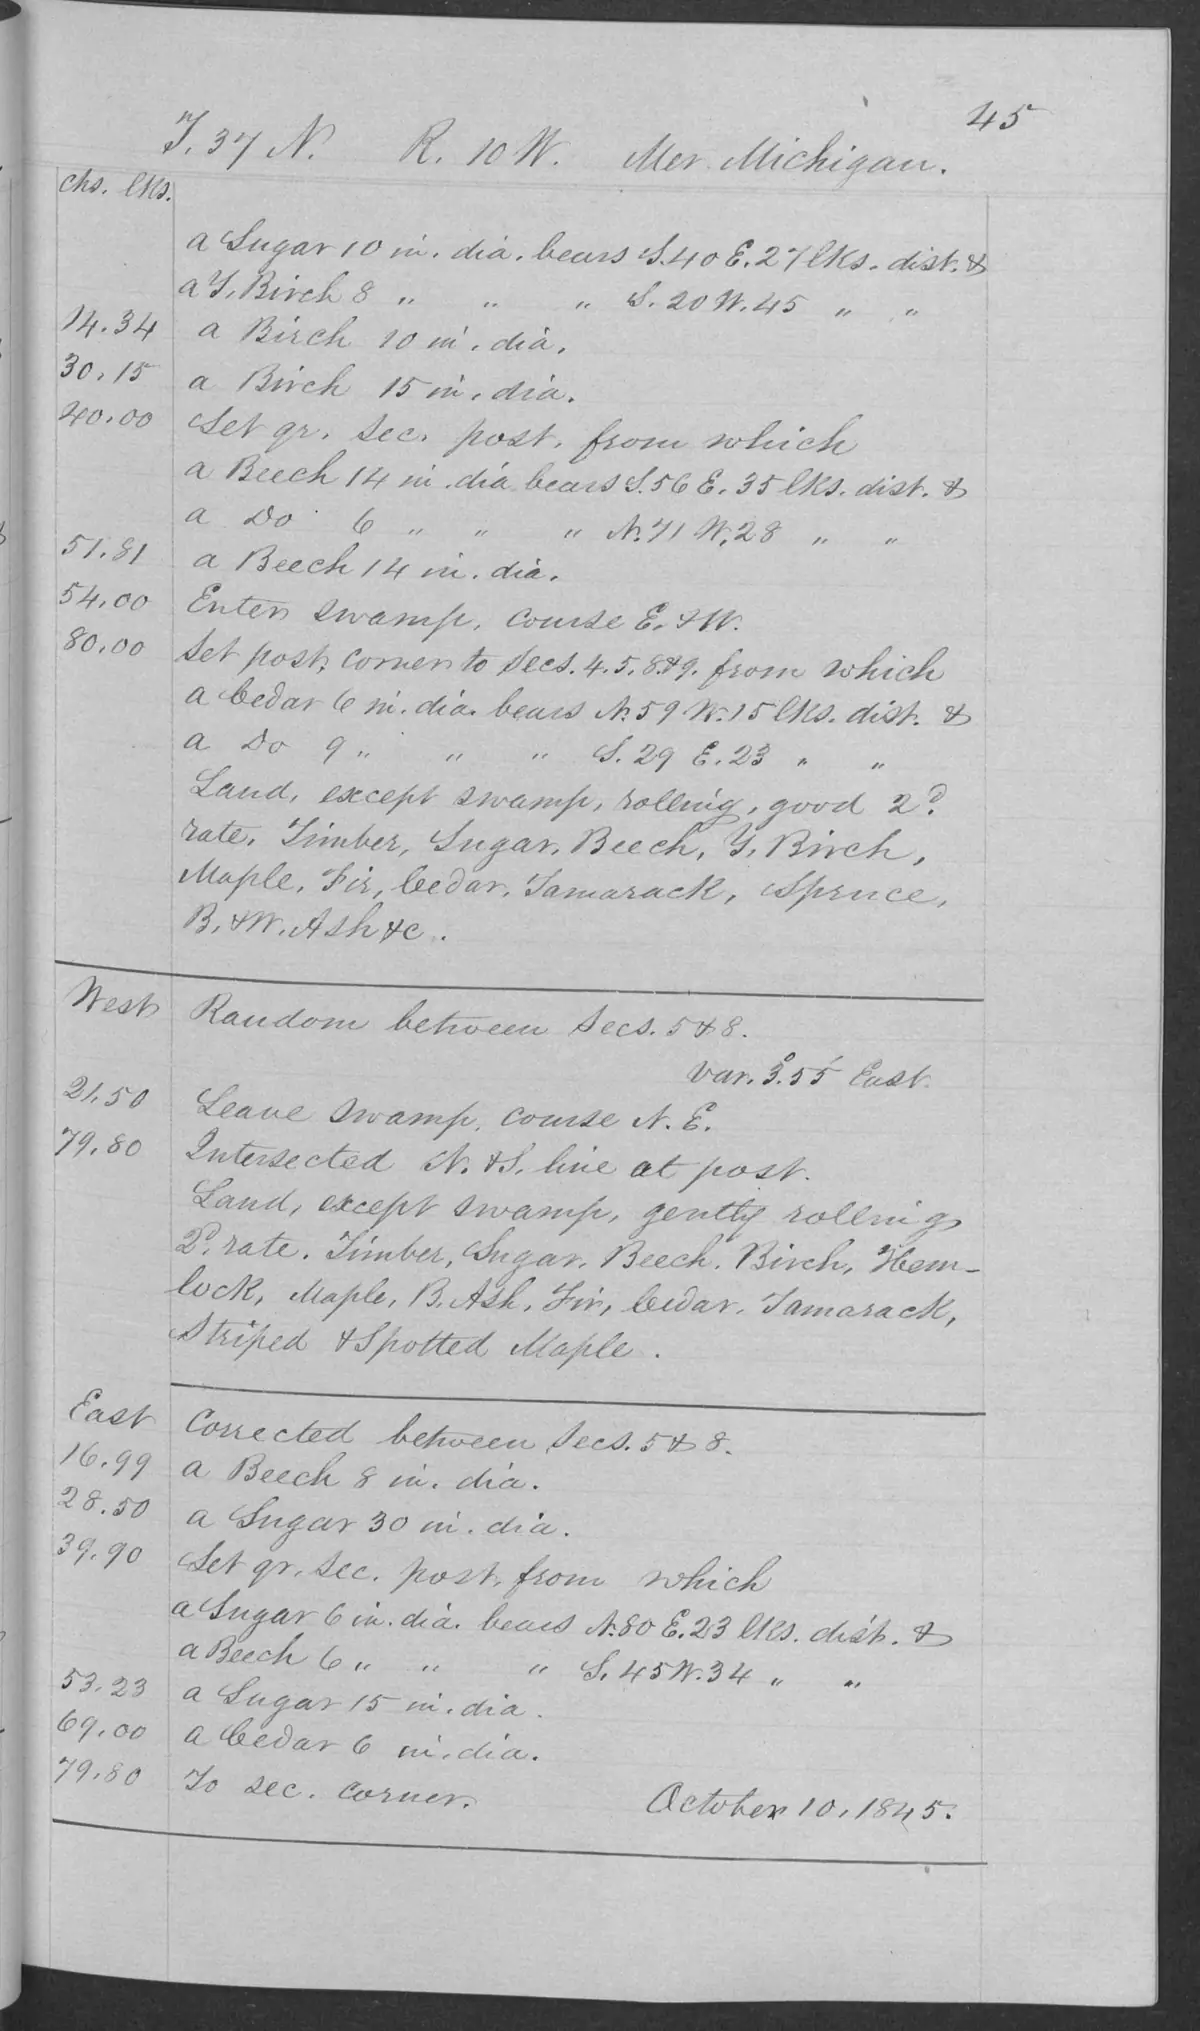 45
T. 37 N. R. 10 W. Mer. Michigan.
chs. lks.
a Sugar 10 in. dia. bears S. 40 E. 27 lks. dist. &
a Y. Birch 8 " " " S. 20 W. 45 " "
14.34 a Birch 10 in. dia.
30.15 a Birch 15 in. dia.
40.00 Set qr. Sec. post, from which
a Beech 14 in. dia bears S. 56 E. 35 lks. dist. &
a Do 6 " " " N. 71 W. 28 " "
51.81 a Beech 14 in. dia.
54.00 Enter swamp, course E. & W.
80.00 Set post, corner to Secs. 4. 5. 8. & 9. from which
a Cedar 6 in. dia. bears N. 59 W. 15 lks. dist. &
a Do 9 " " " S. 29 E. 23 " "
Land, except swamp, rolling, good 2d.
rate. Timber, Sugar, Beech, Y. Birch,
Maple, Fir, Cedar, Tamarack, Spruce,
B. & W. Ash &c.
West Random between Secs. 5 & 8.
Var. 3°.55' East.
21.50 Leave swamp, course N. E.
79.80 Intersected N. & S. line at post.
Land, except swamp, gently rolling
2d. rate. Timber, Sugar, Beech, Birch, Hem-
lock, Maple, B. Ash, Fir, Cedar, Tamarack,
Striped & Spotted Maple.
East Corrected between Secs. 5 & 8.
16.99 a Beech 8 in. dia.
28.50 a Sugar 30 in. dia.
39.90 Set qr. Sec. post, from which
a Sugar 6 in. dia. bears N. 80 E. 23 lks. dist. &
a Beech 6 " " " S. 45 W. 34 " "
53.23 a Sugar 15 in. dia.
69.00 a Cedar 6 in. dia.
79.80 To sec. corner. October 10, 1845.